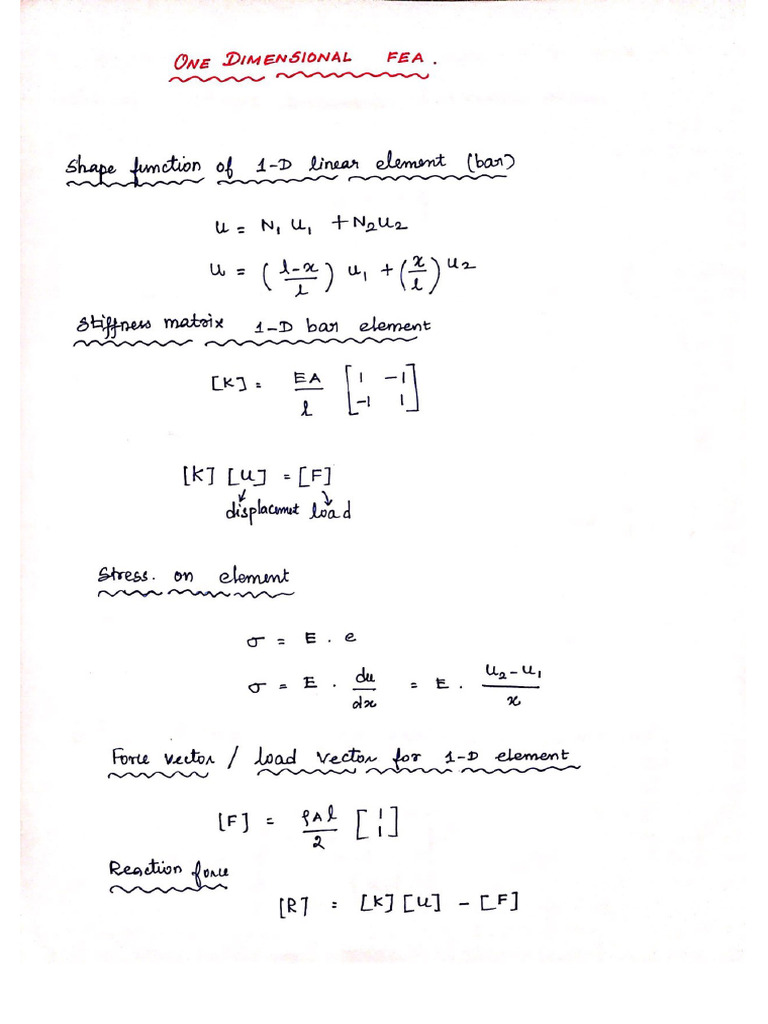 ONE DIMENSIONAL FEA.
Shape function of 1-D linear element (bar)
u = N₁ u₁ + N₂ u₂
u = ( (l-x)/l ) u₁ + ( x/l ) u₂
Stiffness matrix 1-D bar element
[K] = EA/l [ 1 -1 ; -1 1 ]
[K] [u] = [F]
displacemet load
Stress. on element
σ = E . e
σ = E . du/dx = E . (u₂-u₁)/x
Force vector / load vector for 1-D element
[F] = ρAl/2 [ 1 ; 1 ]
Reaction force
[R] = [K] [u] - [F]